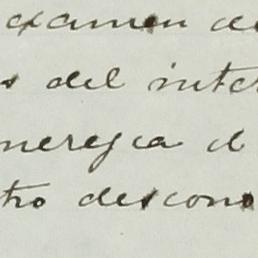 examen de
s del inter
merezca d
tro descono